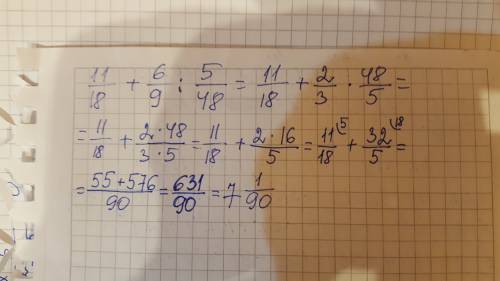 11/18 + 6/9 : 5/48 = 11/18 + 2/3 · 48/5 =
= 11/18 + 2·48/3·5 = 11/18 + 2·16/5 = 11/18 ⁽⁵ + 32/5 ⁽¹⁸ =
= 55+576/90 = 631/90 = 7 1/90